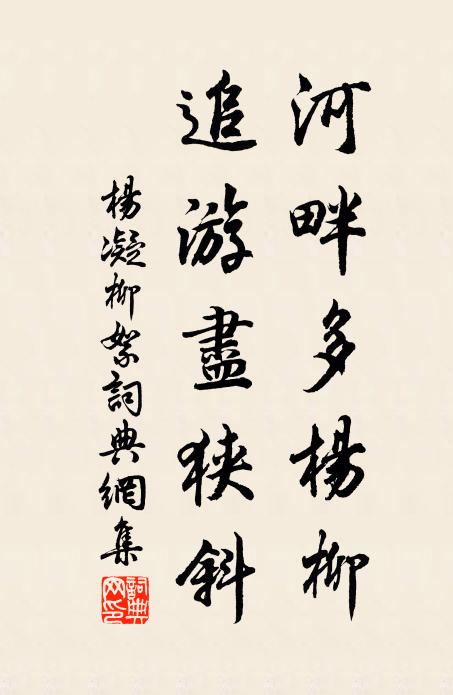 河畔多楊柳
追游盡狹斜
楊凝柳絮詞典網集
詞典网印